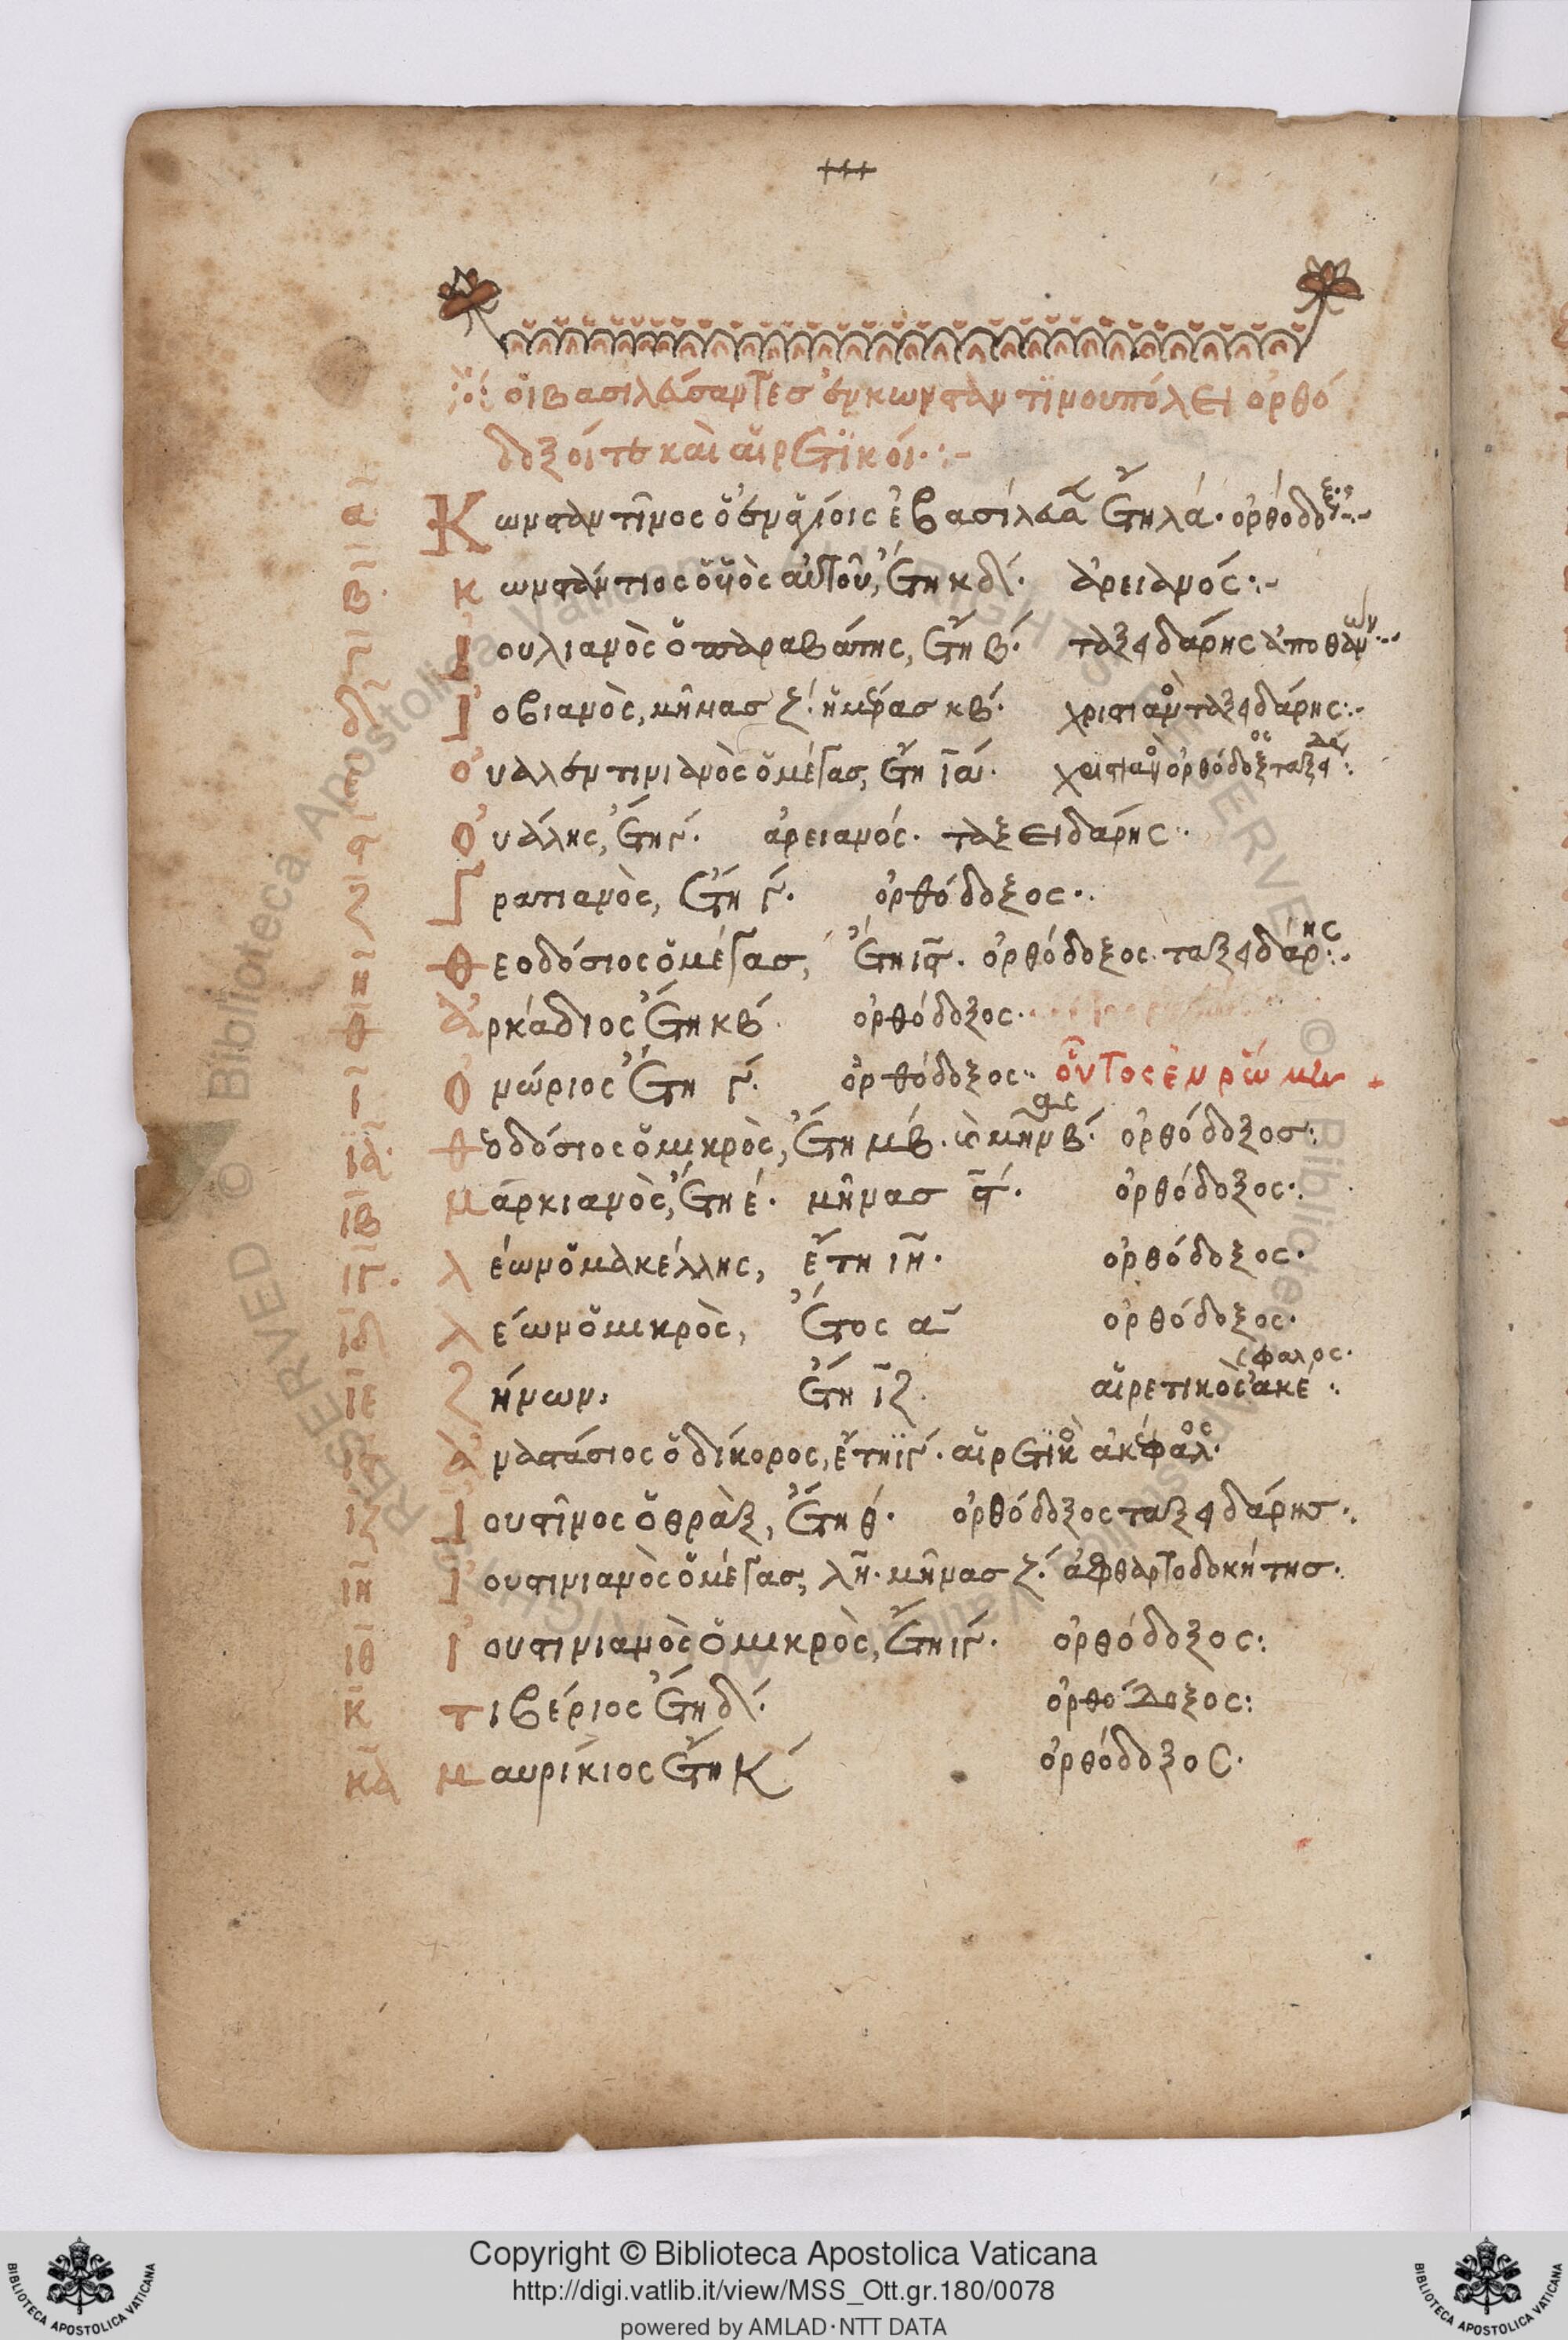 οἱ βασιλεύσαντες ἐν κωνσταντϊνουπόλει ὀρθό
δοξοί τε καὶ αἱρετϊκοί·:-
α Κωνσταντῖνος ὁ ἐν ἁγίοις ἐβασίλευσεν ἔτη λα· ὀρθόδοξος·:-
β κωνστάντιος ὁ ὑιὸς αὐτοῦ, ἔτη κδ· ἀρειανός:-
γ ἰουλιανὸς ὁ παραβάτης, ἔτη β· ταξειδάρης ἀποθανών
δ ἰοβιανὸς, μῆνας ζ· ἡμέρας κβ· χριστιανὸς ταξειδάρης:-
ε οὐαλεντινιανὸς ὁ μέγας, ἔτη ια· χριστιανὸς ὀρθόδοξος ταξειδάρης
ϛ οὐάλης, ἔτη γ· ἀρειανός· ταξειδάρης·
ζ Γρατιανὸς, ἔτη γ· ὀρθόδοξος·
η θεοδόσιος ὁ μέγας, ἔτη ιϛ· ὀρθόδοξος· ταξειδάρης
θ ἀρκάδιος ἔτη κβ ὀρθόδοξος·
ι ὀνώριος ἔτη γ· ὀρθόδοξος· οὗντος ἐν ρώμη +
ια θεοδόσιος ὁ μικρὸς, ἔτη μβ· μῆνας β· ὀρθόδοξος:
ιβ μαρκιανὸς, ἔτη ε· μῆνας ϛ· ὀρθόδοξος·
ιγ λέων ὁ μακέλλης, ἔτη ιη· ὀρθόδοξος·
ιδ λέων ὁ μικρὸς, ἔτος α ὀρθόδοξος·
ιε ζήνων: ἔτη ιζ· αἱρετικὸς ἀκέφαλος·
ιϛ ἀναστάσιος ὁ δίκορος, ἔτη ϊγ· αἱρετϊκὸς ἀκέφαλος·
ιζ ἰουστῖνος ὁ θρὰξ, ἔτη θ· ὀρθόδοξος ταξειδάρης·
ιη ἰουστινιανὸς ὁ μέγας, λη· μῆνας ζ· ἀφθαρτοδοκήτης·
ιθ ἰουστινιανὸς ὁ μικρὸς, ἔτη ιγ· ὀρθόδοξος:
κ τιβέριος ἔτη δ· ὀρθόδοξος:
κα μαυρίκιος ἔτη κ ὀρθόδοξος·
Copyright © Biblioteca Apostolica Vaticana
http://digi.vatlib.it/view/MSS_Ott.gr.180/0078
powered by AMLAD·NTT DATA